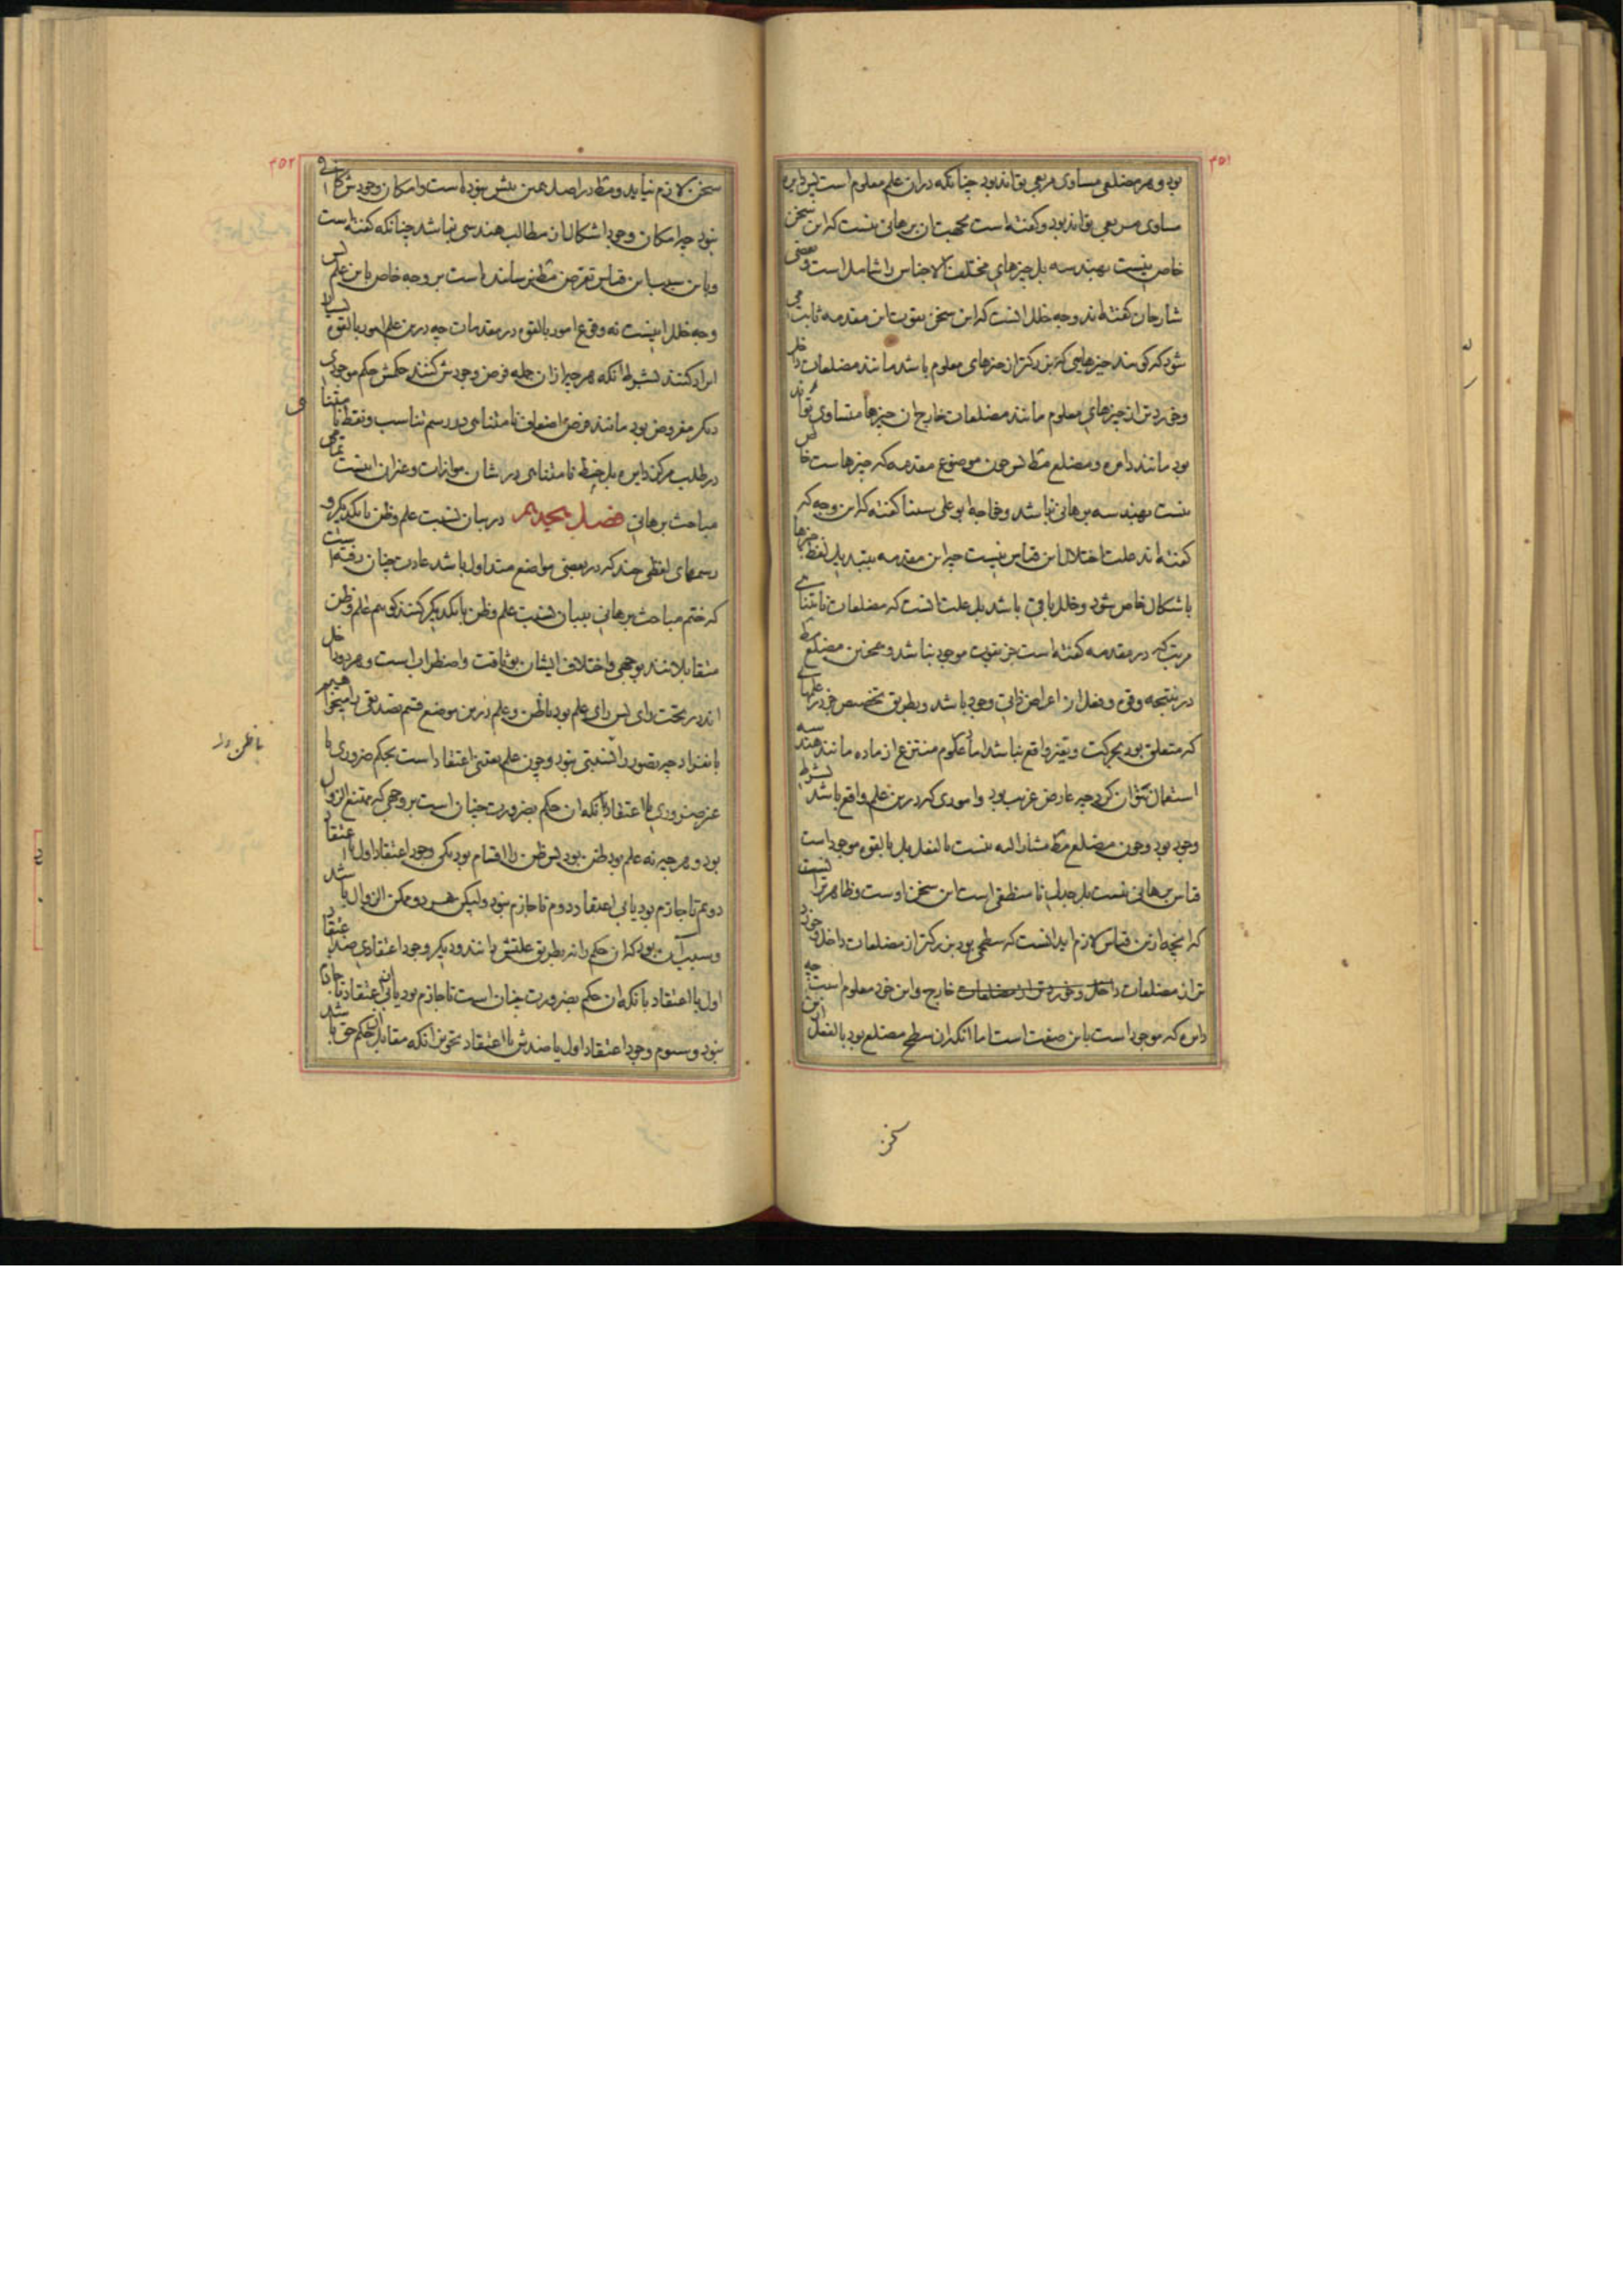 ۴۵۱
بود و هر مضلعی مساوی مربعی تواند بود چنانکه دران علم معلوم است پس دایره
مساوی مربعی تواند بود و گفته است محجت ان برهانی نیست که این سخن
خاص نیست بهندسه بل چیزهای مختلف الاجناس را شامل است و بعضی
شارحان گفته اند وجه خلل انست که این سخن بقوت این مقدمه ثابت می
شود که گویند چیزهایی که بزرگتر از چیزهای معلوم باشد مانند مضلعات داخل
و خردتر از چیزهای معلوم مانند مضلعات خارج ان چیزها متساوی تواند
بود مانند دایره و مضلع مط پس چون موضوع مقدمه که چیزهاست خاص
نیست بهندسه برهانی نباشد و خواجه ابو علی سینا گفته که این وجه که
گفته اند علت اختلال این قیاس نیست چه این مقدمه بتبدیل لفظ چیزها
باشکال خاص شود و خلل باقی باشد بل علت انست که مضلعات نامتناهی
مرتب که در مقدمه گفته است جز بقوت موجود نباشد و همچنین مضلع مط
در نتیجه و قوه و فعل از اعراض ذاتی وجود باشد و بطریق تخصیص جز در علمهای
که متعلق بود بحرکت و تغیر واقع نباشد اما در علوم منتزع از ماده مانند هندسه
استعمال نتوان کرد چه عارض غریب بود و اموری که درین علم واقع باشد بشرط
وجود بود و چون مضلع مط مشار الیه نیست بالفعل بل بالقوه موجود است
قیاس برهانی نیست بل جدلی یا منطقی است این سخن اوست و ظاهرتر انست
که انچه ازین قیاس لازم اید انست که سطحی بود بزرگتر از مضلعات داخل و خورد
تر از مضلعات داخل و خوردتر از مضلعات خارج و این خود معلوم است چه
دایره که موجود است باین صفت است اما انکه ان سطح مضلع بود بالفعل ازین
سخن
۴۵۲
سخن لازم نیاید و مط در اصل همین بیش نبوده است و امکان وجودش کافی
نبود چه امکان وجود اشکال از مطالب هندسی نباشد چنانکه گفته است
و باین سبب این قیاس تعرض مط نرسانیده است بر وجه خاص باین علم پس
وجه خلل اینست نه وقوع امور بالقوه در مقدمات چه درین علم امور بالقوه بسیار
ایراد کنند بشرط انکه هر چه از ان جمله فرض وجودش کنند حکمش حکم موجودی
دیگر مفروض بود مانند فرض اضعاف نامتناهی در رسم تناسب و نقط نامتناهی
در طلب مرکز دایره بل خط نامتناهی در شان موازات و غیر ان اینست تمامی
مباحث برهانی فصل هجدهم در بیان نسبت علم و ظن با یکدیگر و
رسمهای لفظی چند که در بعضی مواضع متداول باشد عادت چنان رفته است
که ختم مباحث برهانی ببیان نسبت علم و ظن با یکدیگر کنند گوییم علم و ظن
متقابلانند بوجهی و اختلاف ایشان بوثاقت و اضطراب است و هر دو داخل
اند در تحت رای پس رای علم بود یا ظن و علم درین موضع قسم تصدیقی را میخواهیم
بانفراد چه تصور را نسبتی نبود و چون علم یقینی اعتقاد است بحکم ضروری یا
غیر ضروری با اعتقاد بانکه ان حکم بضرورت چنان است بر وجهی که ممتنع الزوال
بود و هر چه نه علم بود ظن بود پس ظن را اقسام بود یکی وجود اعتقاد اول با اعتقاد
دویم تا جازم بود یا بی اعتقاد دوم تا جازم نبود ولیکن هر دو ممکن الزوال باشد
و سبب آن بود که ان حکم را نه بطریق علتش دانند و دیگر وجود اعتقادی ضد اعتقاد
اول یا اعتقاد بانکه ان حکم بضرورت چنان است تا جازم بود یا بی ان اعتقاد تا جازم
نبود و سیوم وجود اعتقاد اول یا ضدش با اعتقاد تجویز انکه مقابل ان حکم حق باشد
با ظن را